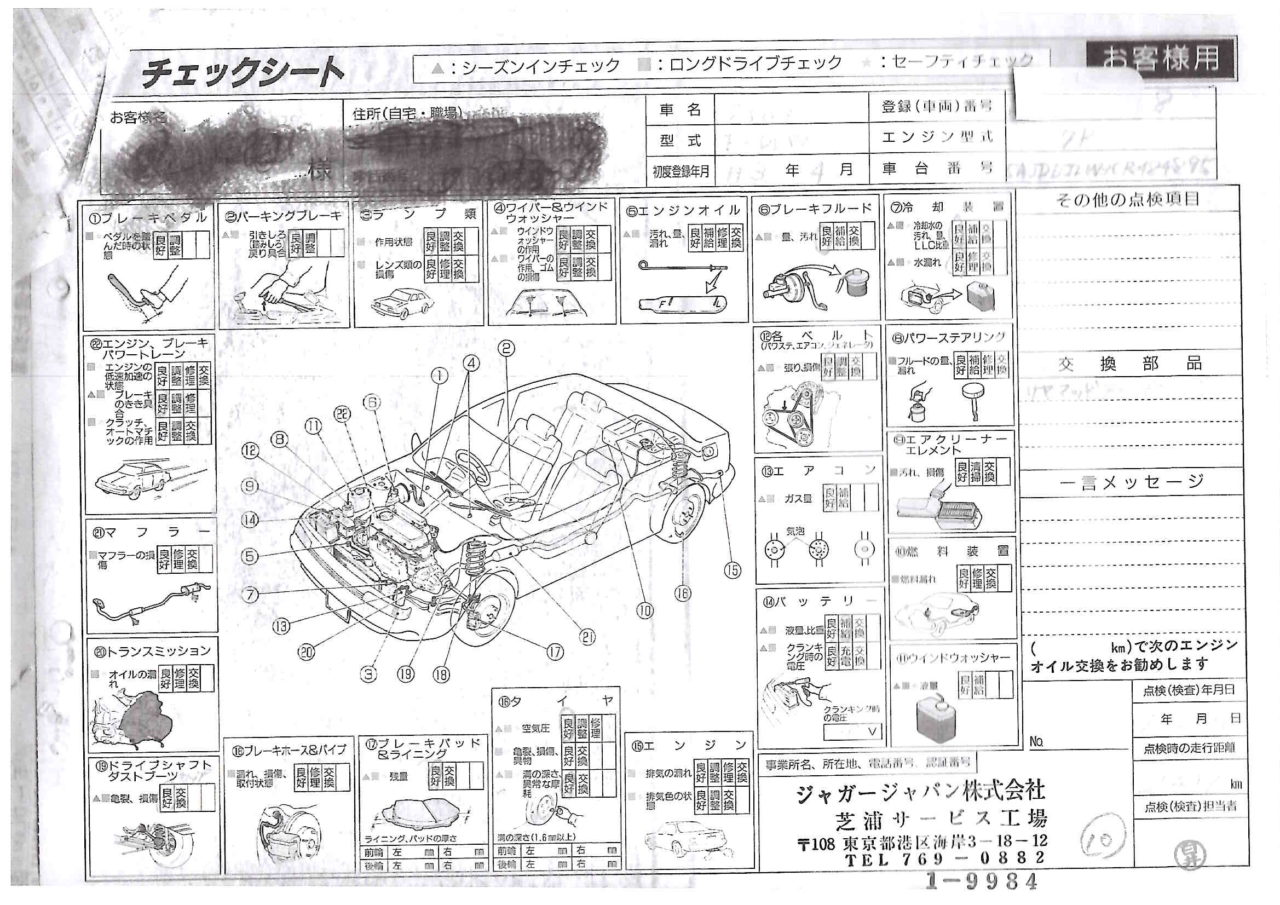 チェックシート
▲：シーズンインチェック ■：ロングドライブチェック ★：セーフティチェック
お客様用
お客様名
様
住所(自宅・職場)
車名
型式
初度登録年月 H3 年 4 月
登録(車両)番号
エンジン型式
車台番号
①ブレーキペダル
ペダルを踏んだ時の状態
良好 調整
②パーキングブレーキ
引きしろ(踏みしろ)戻り具合
良好 調整
③ランプ類
作用状態
良好 調整 交換
レンズ類の損傷
良好 修理 交換
④ワイパー&ウインドウォッシャー
ウインドウォッシャーの作用
良好 調整 交換
ワイパーの作用、ゴムの損傷
良好 調整 交換
⑤エンジンオイル
汚れ、量、漏れ
良好 補給 修理 交換
F L
⑥ブレーキフルード
量、汚れ
良好 補給 交換
⑦冷却装置
冷却水の汚れ、量、LLC比重
良好 補給 交換
水漏れ
良好 修理 交換
その他の点検項目
㉒エンジン、ブレーキパワートレーン
エンジンの低速加速の状態
良好 調整 修理 交換
ブレーキのきき具合
良好 調整 修理
クラッチ、オートマチックの作用
良好 調整 修理 交換
⑫各ベルト
(パワステ、エアコン、ジェネレータ)
張り、損傷
良好 調整 交換
⑧パワーステアリング
フルードの量、漏れ
良好 補給 修理 交換
交換部品
⑬エアコン
ガス量
良好 補給
気泡
⑨エアクリーナーエレメント
汚れ、損傷
良好 清掃 交換
一言メッセージ
㉑マフラー
マフラーの損傷
良好 修理 交換
⑩燃料装置
燃料漏れ
良好 修理 交換
⑭バッテリー
液量、比重
良好 補給 交換
クランキング時の電圧
良好 充電 交換
クランキング時の電圧
V
⑪ウインドウォッシャー
液量
良好 補給
⑳トランスミッション
オイルの漏れ
良好 修理 交換
( km)で次のエンジンオイル交換をお勧めします
⑲ドライブシャフトダストブーツ
亀裂、損傷
良好 交換
⑱ブレーキホース&パイプ
漏れ、損傷、取付状態
良好 修理 交換
⑰ブレーキパッド&ライニング
残量
良好 交換
ライニング、パッドの厚さ
前輪 左 mm 右 mm
後輪 左 mm 右 mm
⑯タイヤ
空気圧
良好 調整 修理
亀裂、損傷、異物
良好 交換
溝の深さ、異常な摩耗
良好 交換
溝の深さ(1.6mm以上)
前輪 左 mm 右 mm
後輪 左 mm 右 mm
⑮エンジン
排気の漏れ
良好 調整 修理 交換
排気色の状態
良好 調整 修理 交換
① ② ④ ⑥ ㉒ ⑪ ⑧ ⑫ ⑨ ⑭ ⑤ ⑦ ⑬ ⑳ ③ ⑲ ⑱ ⑰ ㉑ ⑩ ⑯ ⑮
事業所名、所在地、電話番号、認証番号
ジャガージャパン株式会社
芝浦サービス工場
〒108 東京都港区海岸3-18-12
TEL 769-0882
1-9984
No.
10
点検(検査)年月日
年 月 日
点検時の走行距離
km
点検(検査)担当者
臼井